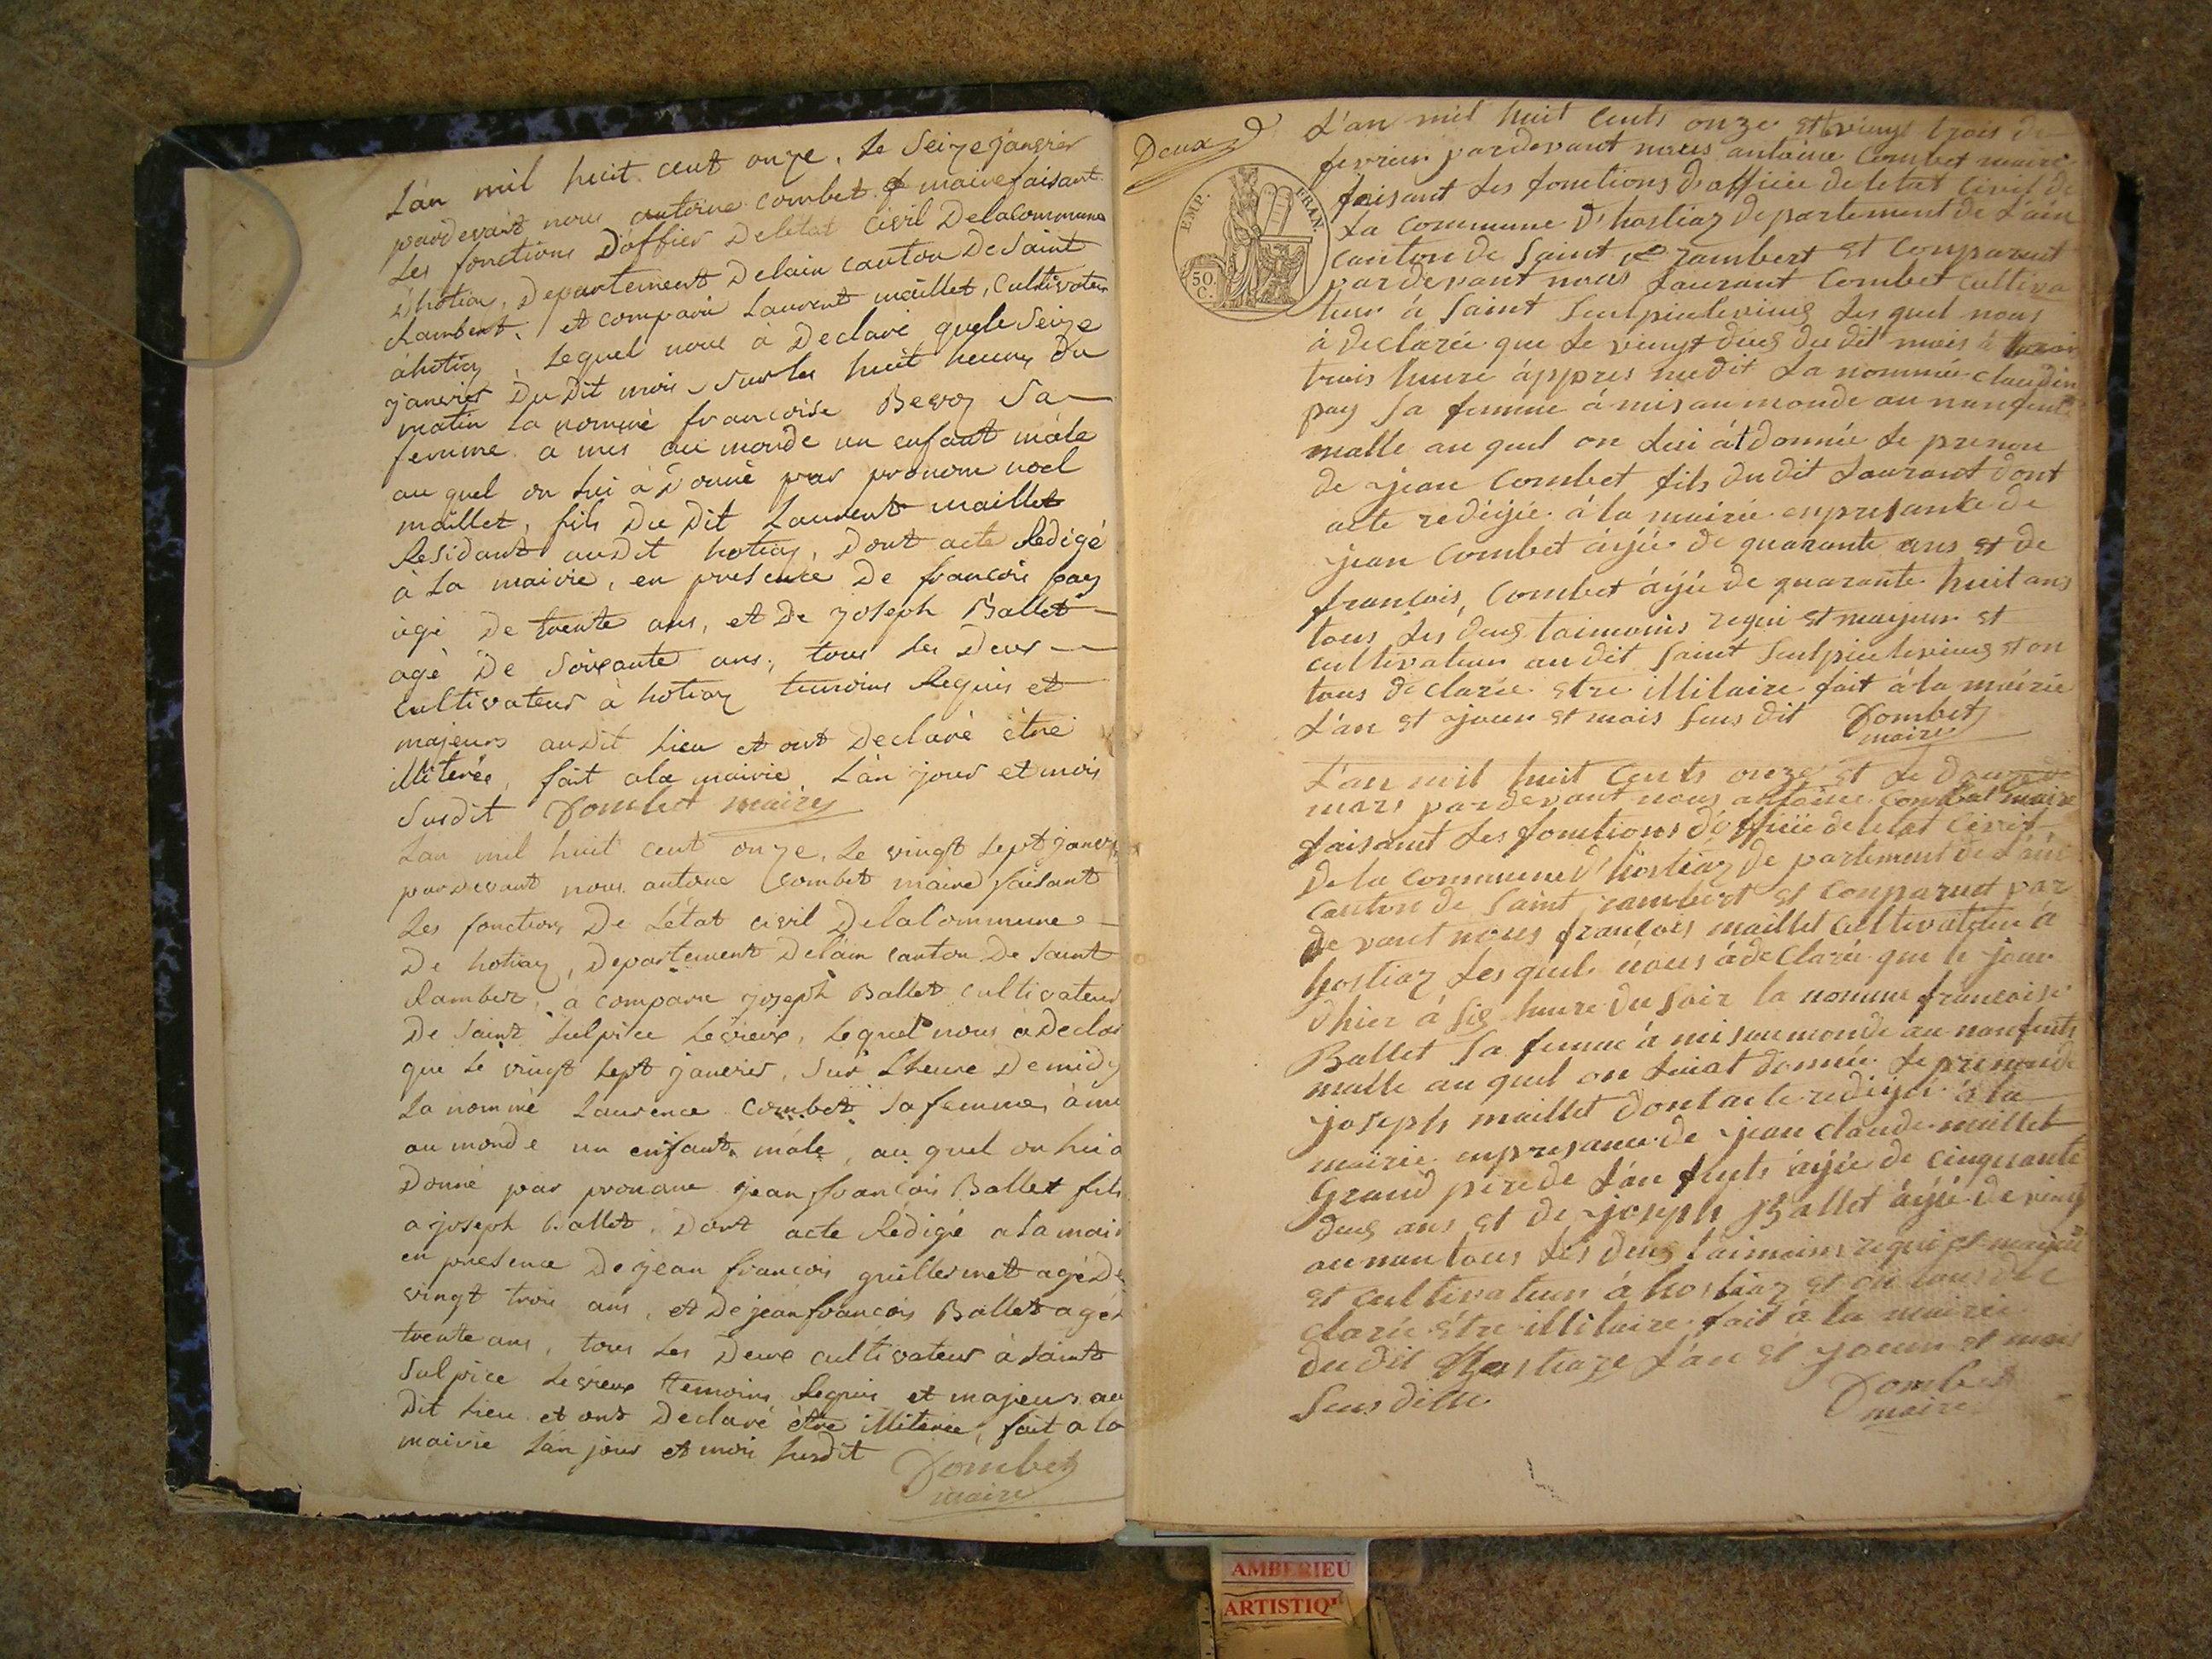 L'an mil huit cent onze, le Seize janvier
pardevant nous antoine combet maire faisant
Les fonctions D'officier Deletat Civil Delacommune
D'hotiaz, Departement Delain canton De Saint
Rambert, et comparu Laurent maillet, Cultivateur
à hotiaz, Lequel nous à Declaré quele Seize
janvier Du Dit mois sur les huit heures Du
matin La nommé francoise Bevoz Sa
femme à mis au monde un enfant mâle
au quel on lui à Donné par pronom noel
maillet, fils Du Dit Laurent maillet
Residant audit hotiaz, Dont acte Redigé
à La mairie, en presence De francois pay
agé De trente ans, et De joseph Ballet
agé De soixante ans, tous Les Deux
Cultivateur à hotiaz temoins Requis et
majeurs audit Lieu et ont Declaré être
illiterée, fait ala mairie L'an jour et mois
Susdit Combet maire
Lan mil huit cent onze, Le vingt Sept janv
pardevant nous antoine Combet maire faisant
Les fonctions De Létat civil Delacommune
De hotiaz, Departement Delain canton De Saint
Rambert, à comparu joseph Ballet cultivateur
De Saint Sulpice Levieux, Lequel nous à Declar
que Le vingt Sept janvier, Sur Lheure Demidy
La nommé Laurence Combet Safemme, à mi
au monde un enfant mâle, au quel on lui a
Donné par pronom jean francois Ballet fils
a joseph Ballet, Dont acte Redigé a La mair
en presence De jean francois guillermet agé De
vingt trois ans, et De jean francois Ballet agé D
trente ans, tous Les Deux cultivateur à Saint
Sulpice Levieux temoins Requis et majeur au
Dit Lieu et ont Declaré être illiterée, fait a la
mairie L'an jour et mois Susdit
Combet
maire
Deux
EMP. FRAN.
50 C.
L'an mil huit cents onze et vingt trois de
fevrier pardevant nous antoine Combet maire
faisant les fonctions d'afficie de letat Civil de
la Commune D'hostiaz departement de L'ain
canton de Saint rambert et Comparut
pardevant nous Laurant Combet cultiva
teur à Saint Sulpicelevieus les quel nous
à declarée que le vingt deus du dit mois à
trois heure áppres midit la nommée claudin
pay sa femme à mis au monde au nenfent
malle au quel on lui át donnée le prenon
de jean Combet fils du dit Laurant dont
acte redigée à la mairie enpresante de
jean Combet áijée de quarante ans et de
francois, Combet áijé de quarante huit ans
tous les deus taimoins requi et majeur et
cultivateur au dit Saint Sulpicelevieus et on
tous declarée etre illitaire fait à la mairie
L'an et jour et mois sus dit Combet
maire
L'an mil huit Cents onze et le douze de
mars pardevant nous antoine Combet maire
faisant les fonctions d'officiie deletat Civil
de la Commune D'hostiaz departement de L'ain
Canton de Saint rambert et Comparut par
devant nous francois maillet Cultivateur à
hostiaz les quel nous à declaré que le jour
dhier à sis heure du soir la nommé francoise
Ballet sa femme à mis au monde au nenfents
malle au quel on luiat donnée le prenom de
joseph maillet dont acte redigée à la
mairie enpresance de jean claude maillet
Grand pere de L'an fents áijée de cinquante
deus ans et de joseph Ballet áijé de vingt
tous les deus taimoins requi et majeur
et cultivateur à hostiaz et on tous de
clarée étre illitaire fait à la mairie
du dit hostiaze L'an et jour et mois
Sus ditte
Combet
maire
AMBERIEU
ARTISTIQ